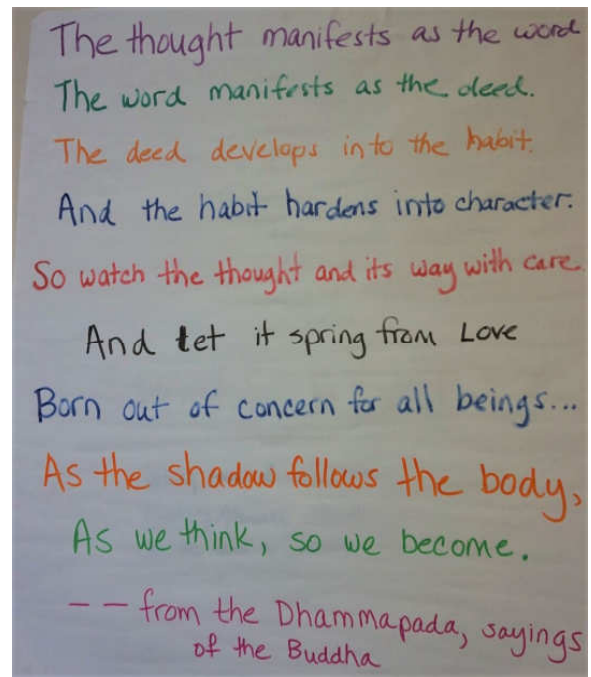 The thought manifests as the word
The word manifests as the deed.
The deed develops into the habit.
And the habit hardens into character.
So watch the thought and its way with care.
And let it spring from Love
Born out of concern for all beings...
As the shadow follows the body,
As we think, so we become.
-- from the Dhammapada, sayings
of the Buddha